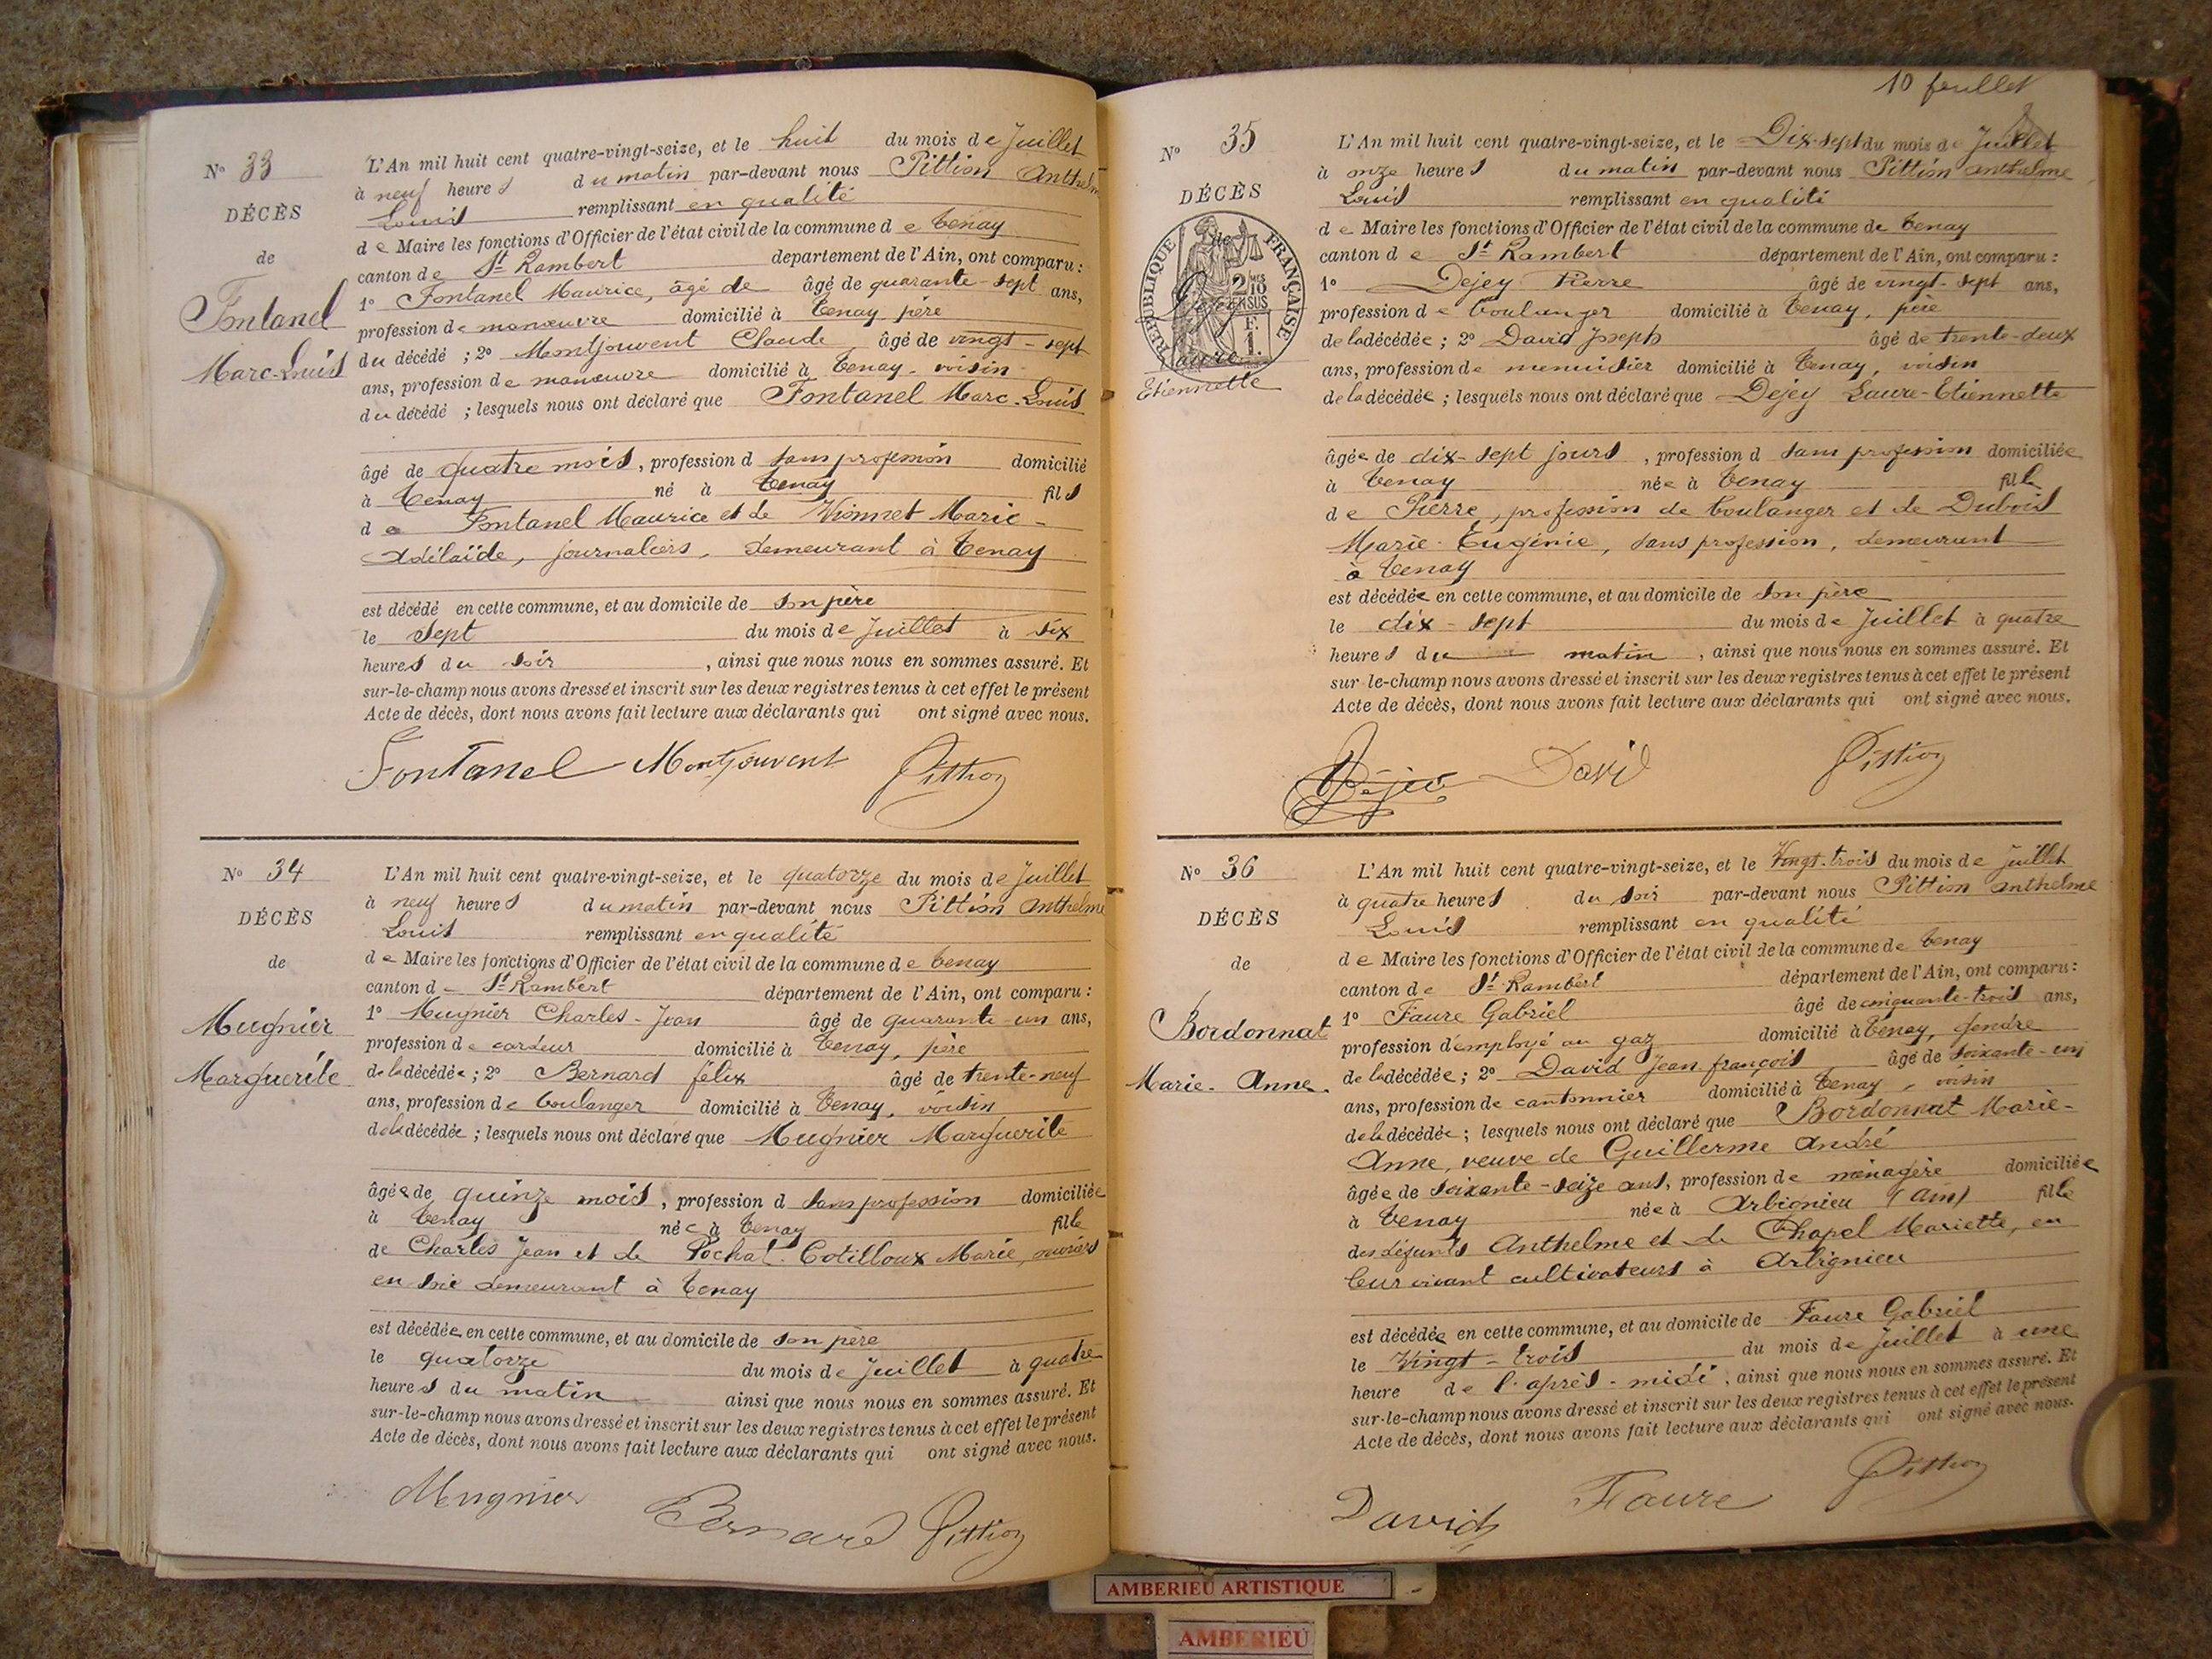 N° 33
DÉCÈS
de
Fontanel
Marc-Louis
L'An mil huit cent quatre-vingt-seize, et le huit du mois de Juillet
à neuf heures du matin par-devant nous Pittion Anthelme
Louis remplissant en qualité
de Maire les fonctions d'Officier de l'état civil de la commune de Tenay
canton de St Rambert département de l'Ain, ont comparu :
1° Fontanel Maurice, âgé de âgé de quarante-sept ans,
profession de manœuvre domicilié à Tenay, père
du décédé ; 2° Montjouvent Claude, âgé de vingt-sept
ans, profession de manœuvre domicilié à Tenay, voisin
du décédé ; lesquels nous ont déclaré que Fontanel Marc-Louis
âgé de quatre mois, profession d sans profession domicilié
à Tenay né à Tenay fils
de Fontanel Maurice et de Vionnet Marie-
Adélaïde, journaliers, demeurant à Tenay
est décédé en cette commune, et au domicile de son père
le sept du mois de Juillet à six
heures du soir, ainsi que nous nous en sommes assuré. Et
sur-le-champ nous avons dressé et inscrit sur les deux registres tenus à cet effet le présent
Acte de décès, dont nous avons fait lecture aux déclarants qui ont signé avec nous.
Fontanel Montjouvent Pittion
N° 34
DÉCÈS
de
Mugnier
Marguerite
L'An mil huit cent quatre-vingt-seize, et le quatorze du mois de Juillet
à neuf heures du matin par-devant nous Pittion Anthelme
Louis remplissant en qualité
de Maire les fonctions d'Officier de l'état civil de la commune de Tenay
canton de St Rambert département de l'Ain, ont comparu :
1° Mugnier Charles-Jean âgé de quarante-un ans,
profession de cardeur domicilié à Tenay, père
de la décédée ; 2° Bernard félix âgé de trente-neuf
ans, profession de boulanger domicilié à Tenay, voisin
de la décédée ; lesquels nous ont déclaré que Mugnier Marguerite
âgée de quinze mois, profession d sans profession domiciliée
à Tenay née à Tenay fille
de Charles Jean et de Pochat-Cotilloux Marie, ouvriers
en soie demeurant à Tenay
est décédée en cette commune, et au domicile de son père
le quatorze du mois de Juillet à quatre
heures du matin ainsi que nous nous en sommes assuré. Et
sur-le-champ nous avons dressé et inscrit sur les deux registres tenus à cet effet le présent
Acte de décès, dont nous avons fait lecture aux déclarants qui ont signé avec nous.
Mugnier Bernard Pittion
10 feuillet
N° 35
DÉCÈS
de
RÉPUBLIQUE FRANÇAISE
Dejey
Laure
Etiennette
L'An mil huit cent quatre-vingt-seize, et le Dix-sept du mois de Juillet
à onze heures du matin par-devant nous Pittion Anthelme
Louis remplissant en qualité
de Maire les fonctions d'Officier de l'état civil de la commune de Tenay
canton de St Rambert département de l'Ain, ont comparu :
1° Dejey Pierre âgé de vingt-sept ans,
profession de boulanger domicilié à Tenay, père
de la décédée ; 2° David Joseph âgé de trente-deux
ans, profession de menuisier domicilié à Tenay, voisin
de la décédée ; lesquels nous ont déclaré que Dejey Laure-Etiennette
âgée de dix-sept jours, profession d sans profession domiciliée
à Tenay née à Tenay fille
de Pierre, profession de boulanger et de Dubois
Marie-Eugénie, sans profession, demeurant
à Tenay
est décédée en cette commune, et au domicile de son père
le dix-sept du mois de Juillet à quatre
heures du matin, ainsi que nous nous en sommes assuré. Et
sur-le-champ nous avons dressé et inscrit sur les deux registres tenus à cet effet le présent
Acte de décès, dont nous avons fait lecture aux déclarants qui ont signé avec nous.
David Pittion
N° 36
DÉCÈS
de
Bordonnat
Marie-Anne
L'An mil huit cent quatre-vingt-seize, et le Vingt-trois du mois de Juillet
à quatre heures du soir par-devant nous Pittion Anthelme
Louis remplissant en qualité
de Maire les fonctions d'Officier de l'état civil de la commune de Tenay
canton de St Rambert département de l'Ain, ont comparu :
1° Faure Gabriel âgé de cinquante-trois ans,
profession d'employé au gaz domicilié à Tenay, gendre
de la décédée ; 2° David Jean françois âgé de soixante-un
ans, profession de cantonnier domicilié à Tenay, voisin
de la décédée ; lesquels nous ont déclaré que Bordonnat Marie-
Anne, veuve de Guillerme André
âgée de soixante-seize ans, profession de ménagère domiciliée
à Tenay née à Arbignieu (Ain) fille
des défunts Anthelme et de Chapel Mariette, en
leur vivant cultivateurs à Arbignieu
est décédée en cette commune, et au domicile de Faure Gabriel
le Vingt-trois du mois de Juillet à une
heure de l'après-midi, ainsi que nous nous en sommes assuré. Et
sur-le-champ nous avons dressé et inscrit sur les deux registres tenus à cet effet le présent
Acte de décès, dont nous avons fait lecture aux déclarants qui ont signé avec nous.
David Faure Pittion
AMBERIEU ARTISTIQUE
AMBERIEU